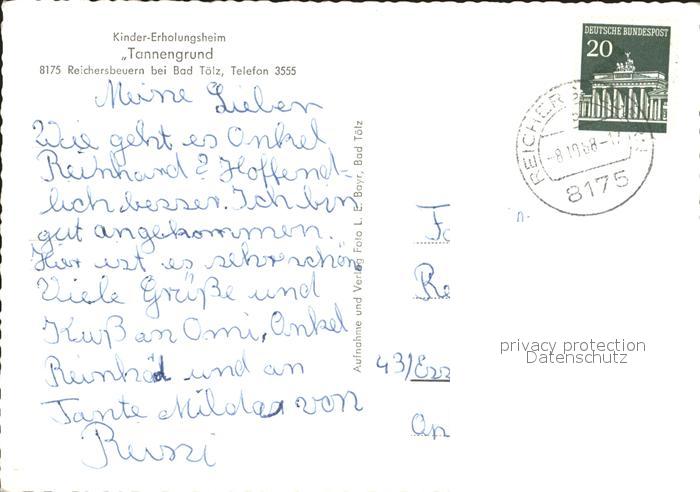 Kinder-Erholungsheim
„Tannengrund
8175 Reichersbeuern bei Bad Tölz, Telefon 3555
Meine Lieben
Wie geht es Onkel
Reinhard? Hoffend-
lich besser. Ich bin
gut angekommen.
Hier ist es sehr schön
Viele Grüße und
Kuß an Omi, Onkel
Reinhad und an
Tante Milda von
Aufnahme und Verlag Foto L. E. Bayr, Bad Tölz
DEUTSCHE BUNDESPOST
20
REICHER
-8.10.68-17
8175
43/
privacy protection
Datenschutz